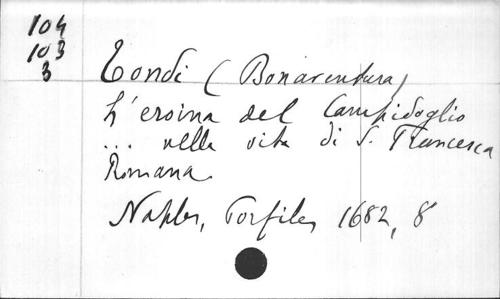 104
103
3
Tondi (Bonaventura)
L'eroina del Campidoglio
... nella vita di S. Francesca
Romana
Naples, Porfile, 1682, 8